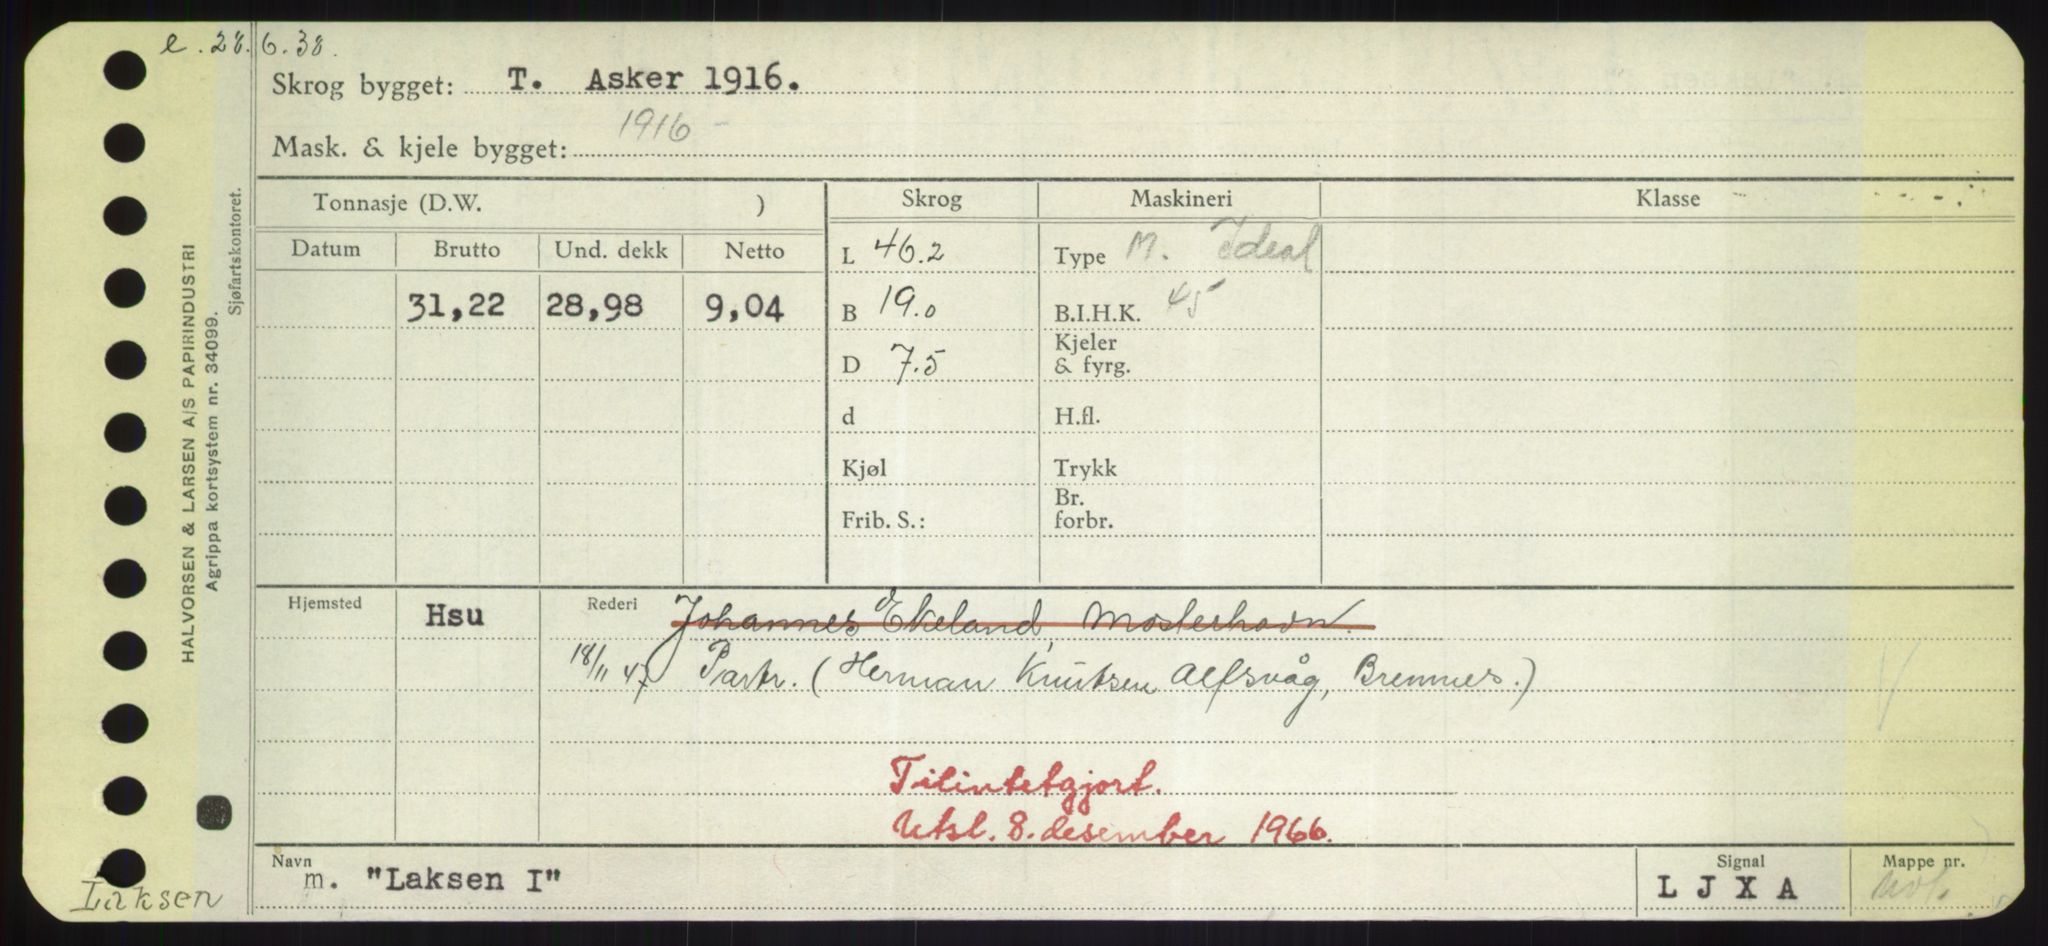 e. 28.6.38.
Skrog bygget: T. Asker 1916.
Mask. & kjele bygget: 1916
HALVORSEN & LARSEN A/S PAPIRINDUSTRI
Agrippa kortsystem nr. 34099.
Sjøfartskontoret.
Tonnasje (D.W. ) Skrog Maskineri Klasse
Datum Brutto Und. dekk Netto L 46.2 Type M. Ideal
31,22 28,98 9,04 B 19.0 B.I.H.K. 45
D 7.5 Kjeler & fyrg.
d H.fl.
Kjøl Trykk
Frib. S.: Br. forbr.
Hjemsted Hsu Rederi Johannes Ekeland, Mosterhavn.
18/11 47 Partr. (Herman Knutsen Alfsvåg, Bremnes.)
Tilintetgjort.
Utsl. 8. desember 1966.
Navn Signal Mappe nr.
m. "Laksen I" L J X A
Laksen